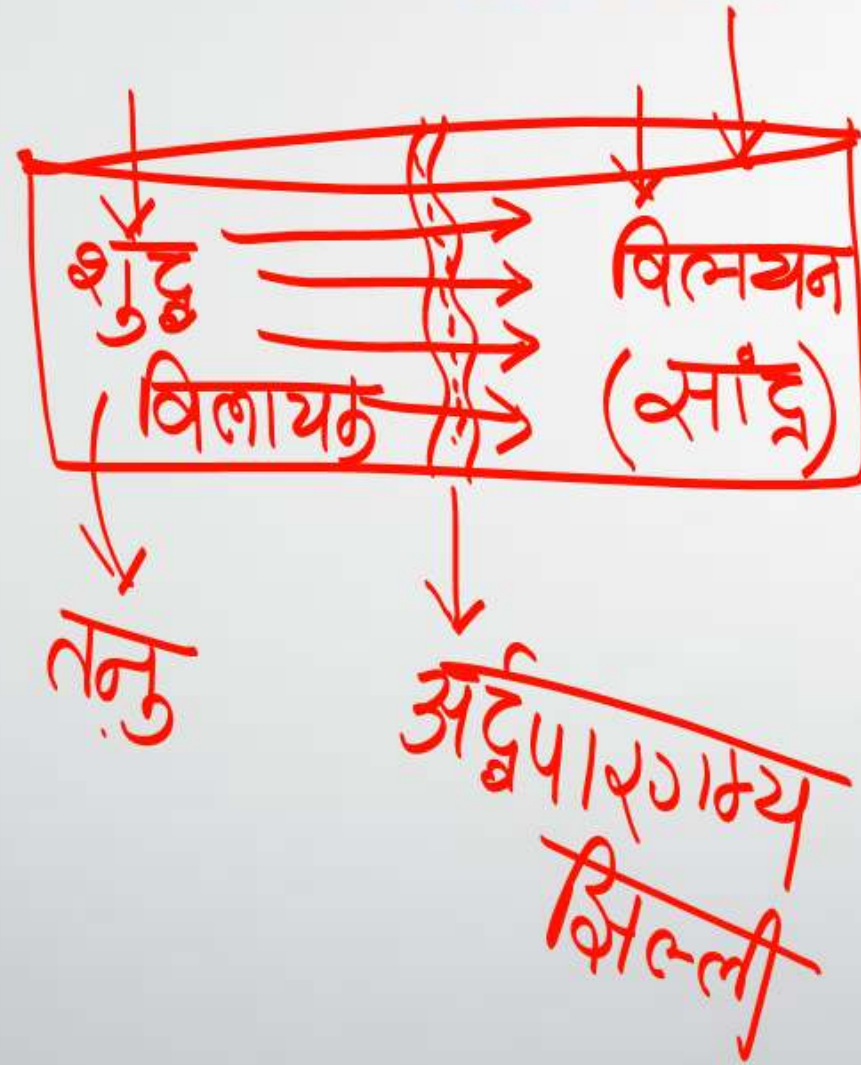 शुद्ध
विलायक
विलयन
(सांद्र)
तनु
अर्द्धपारगम्य
झिल्ली